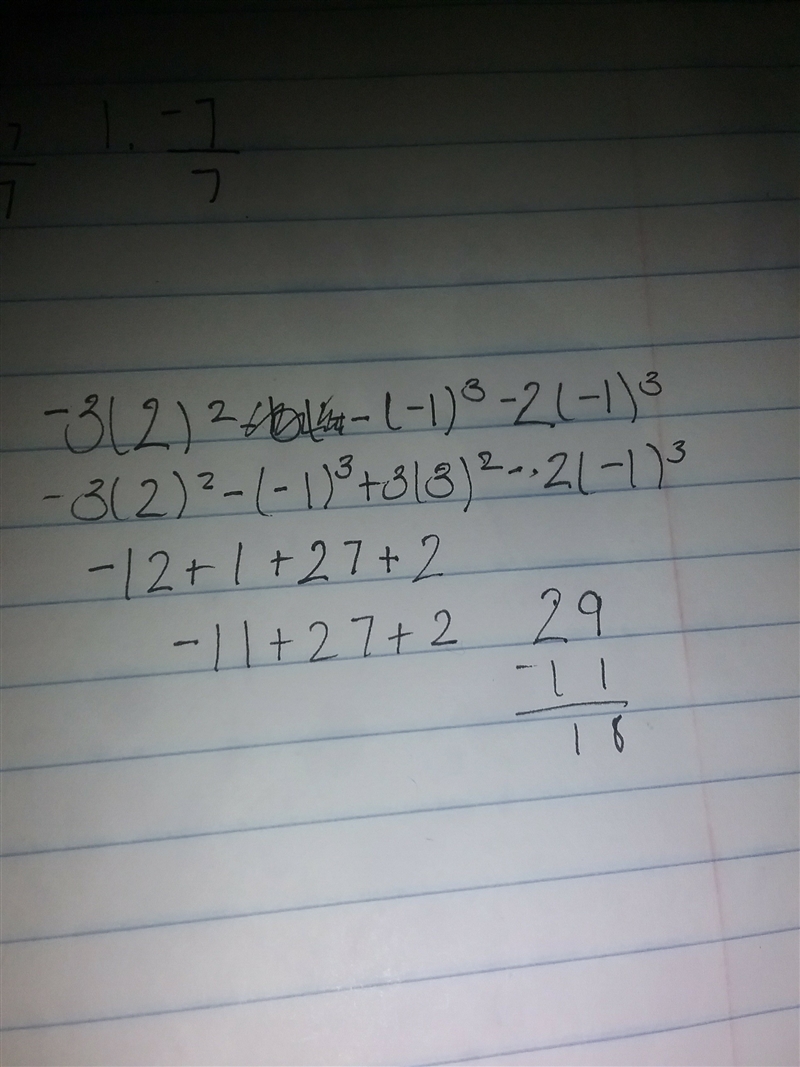 7/7 1. -7/7
-3(2)² -(-1)³ -2(-1)³
-3(2)² -(-1)³ +3(3)² -·2(-1)³
-12+1+27+2
-11+27+2 29
-11
18